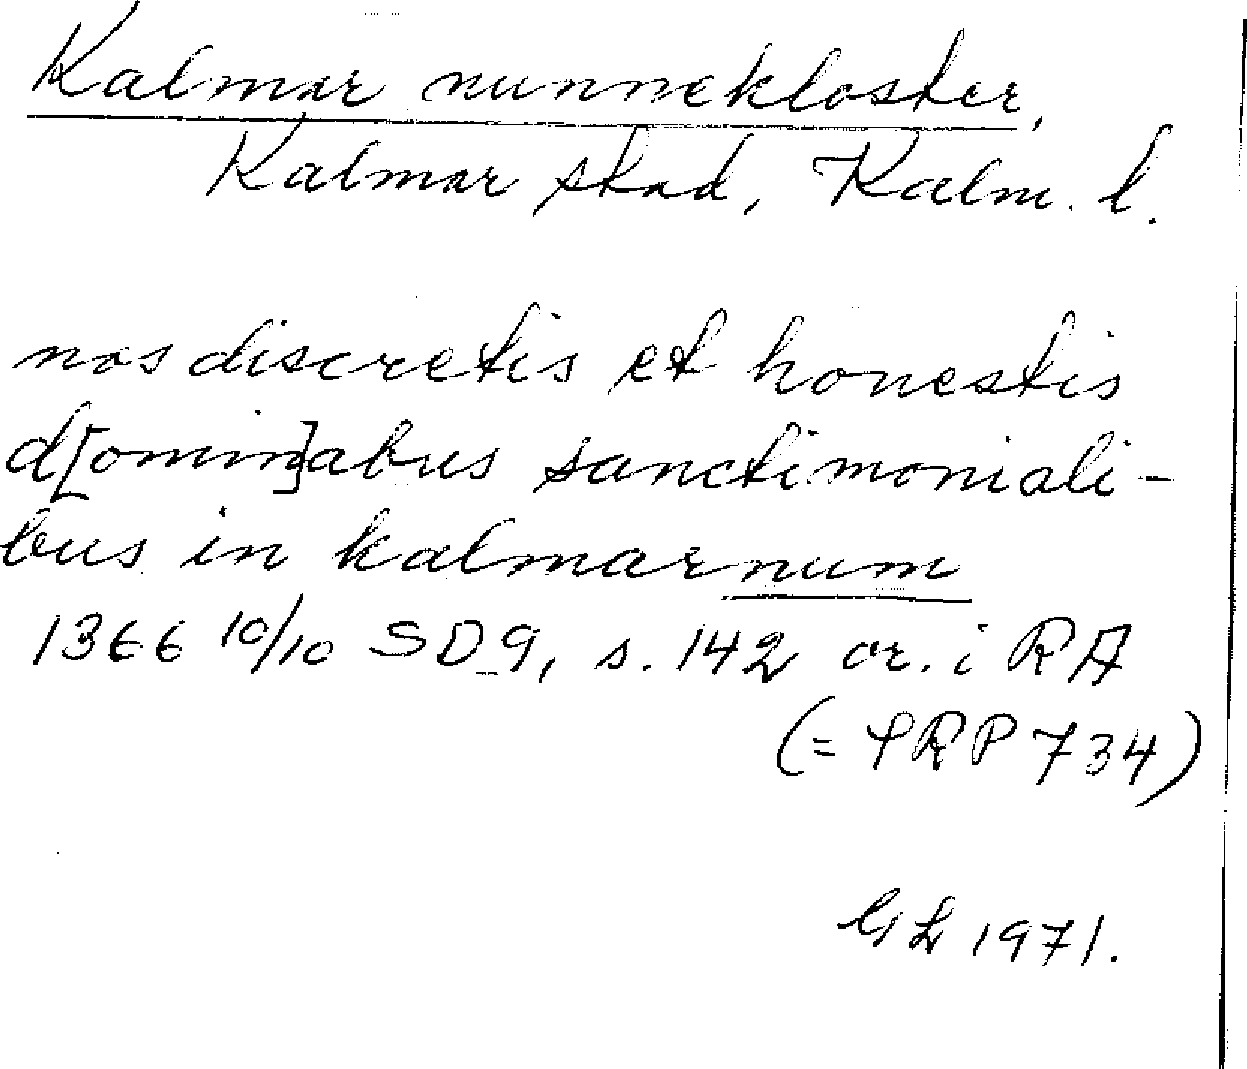 Kalmar nunnekloster,
Kalmar stad, Kalm. l.
nos discretis et honestis
d[omin]abus sanctimoniali-
bus in kalmarnum
1366 10/10 SD 9, s. 142 or. i RA
(= PRP 734)
GL 1971.